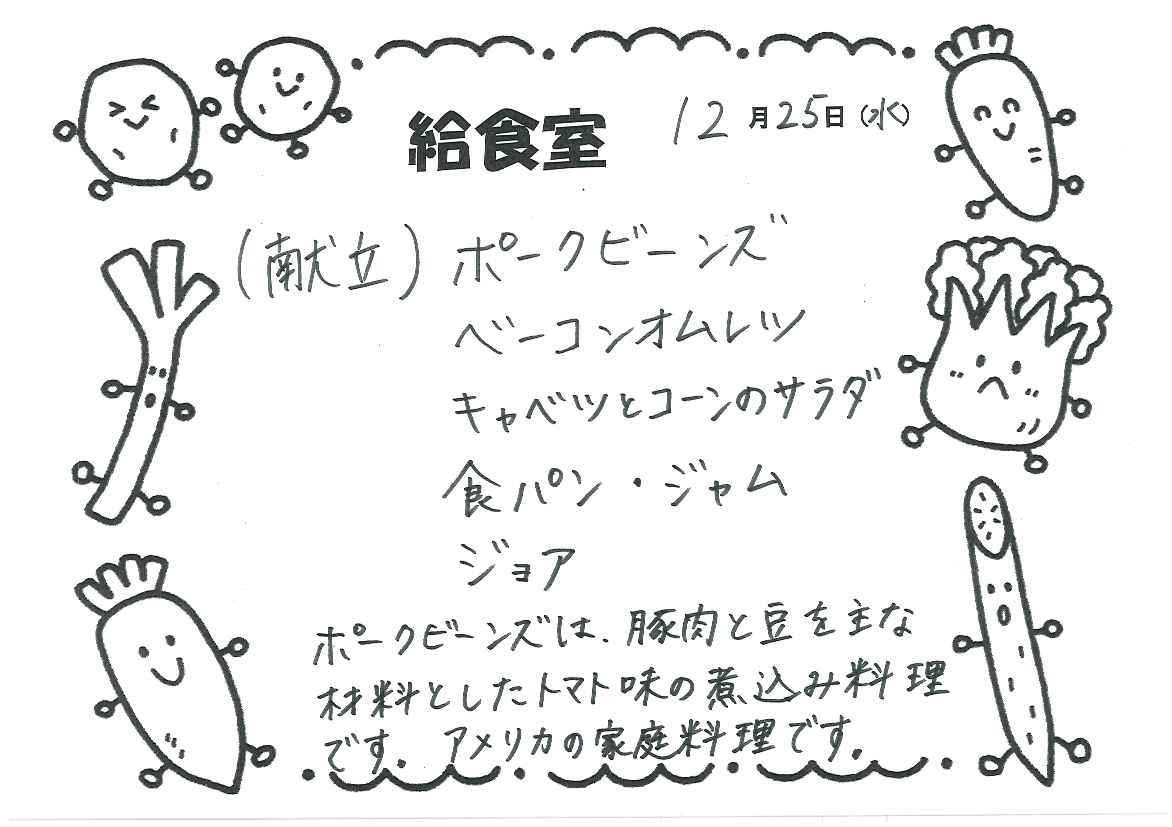 給食室 12月25日(水)
(献立) ポークビーンズ
ベーコンオムレツ
キャベツとコーンのサラダ
食パン・ジャム
ジョア
ポークビーンズは、豚肉と豆を主な
材料としたトマト味の煮込み料理
です。アメリカの家庭料理です。